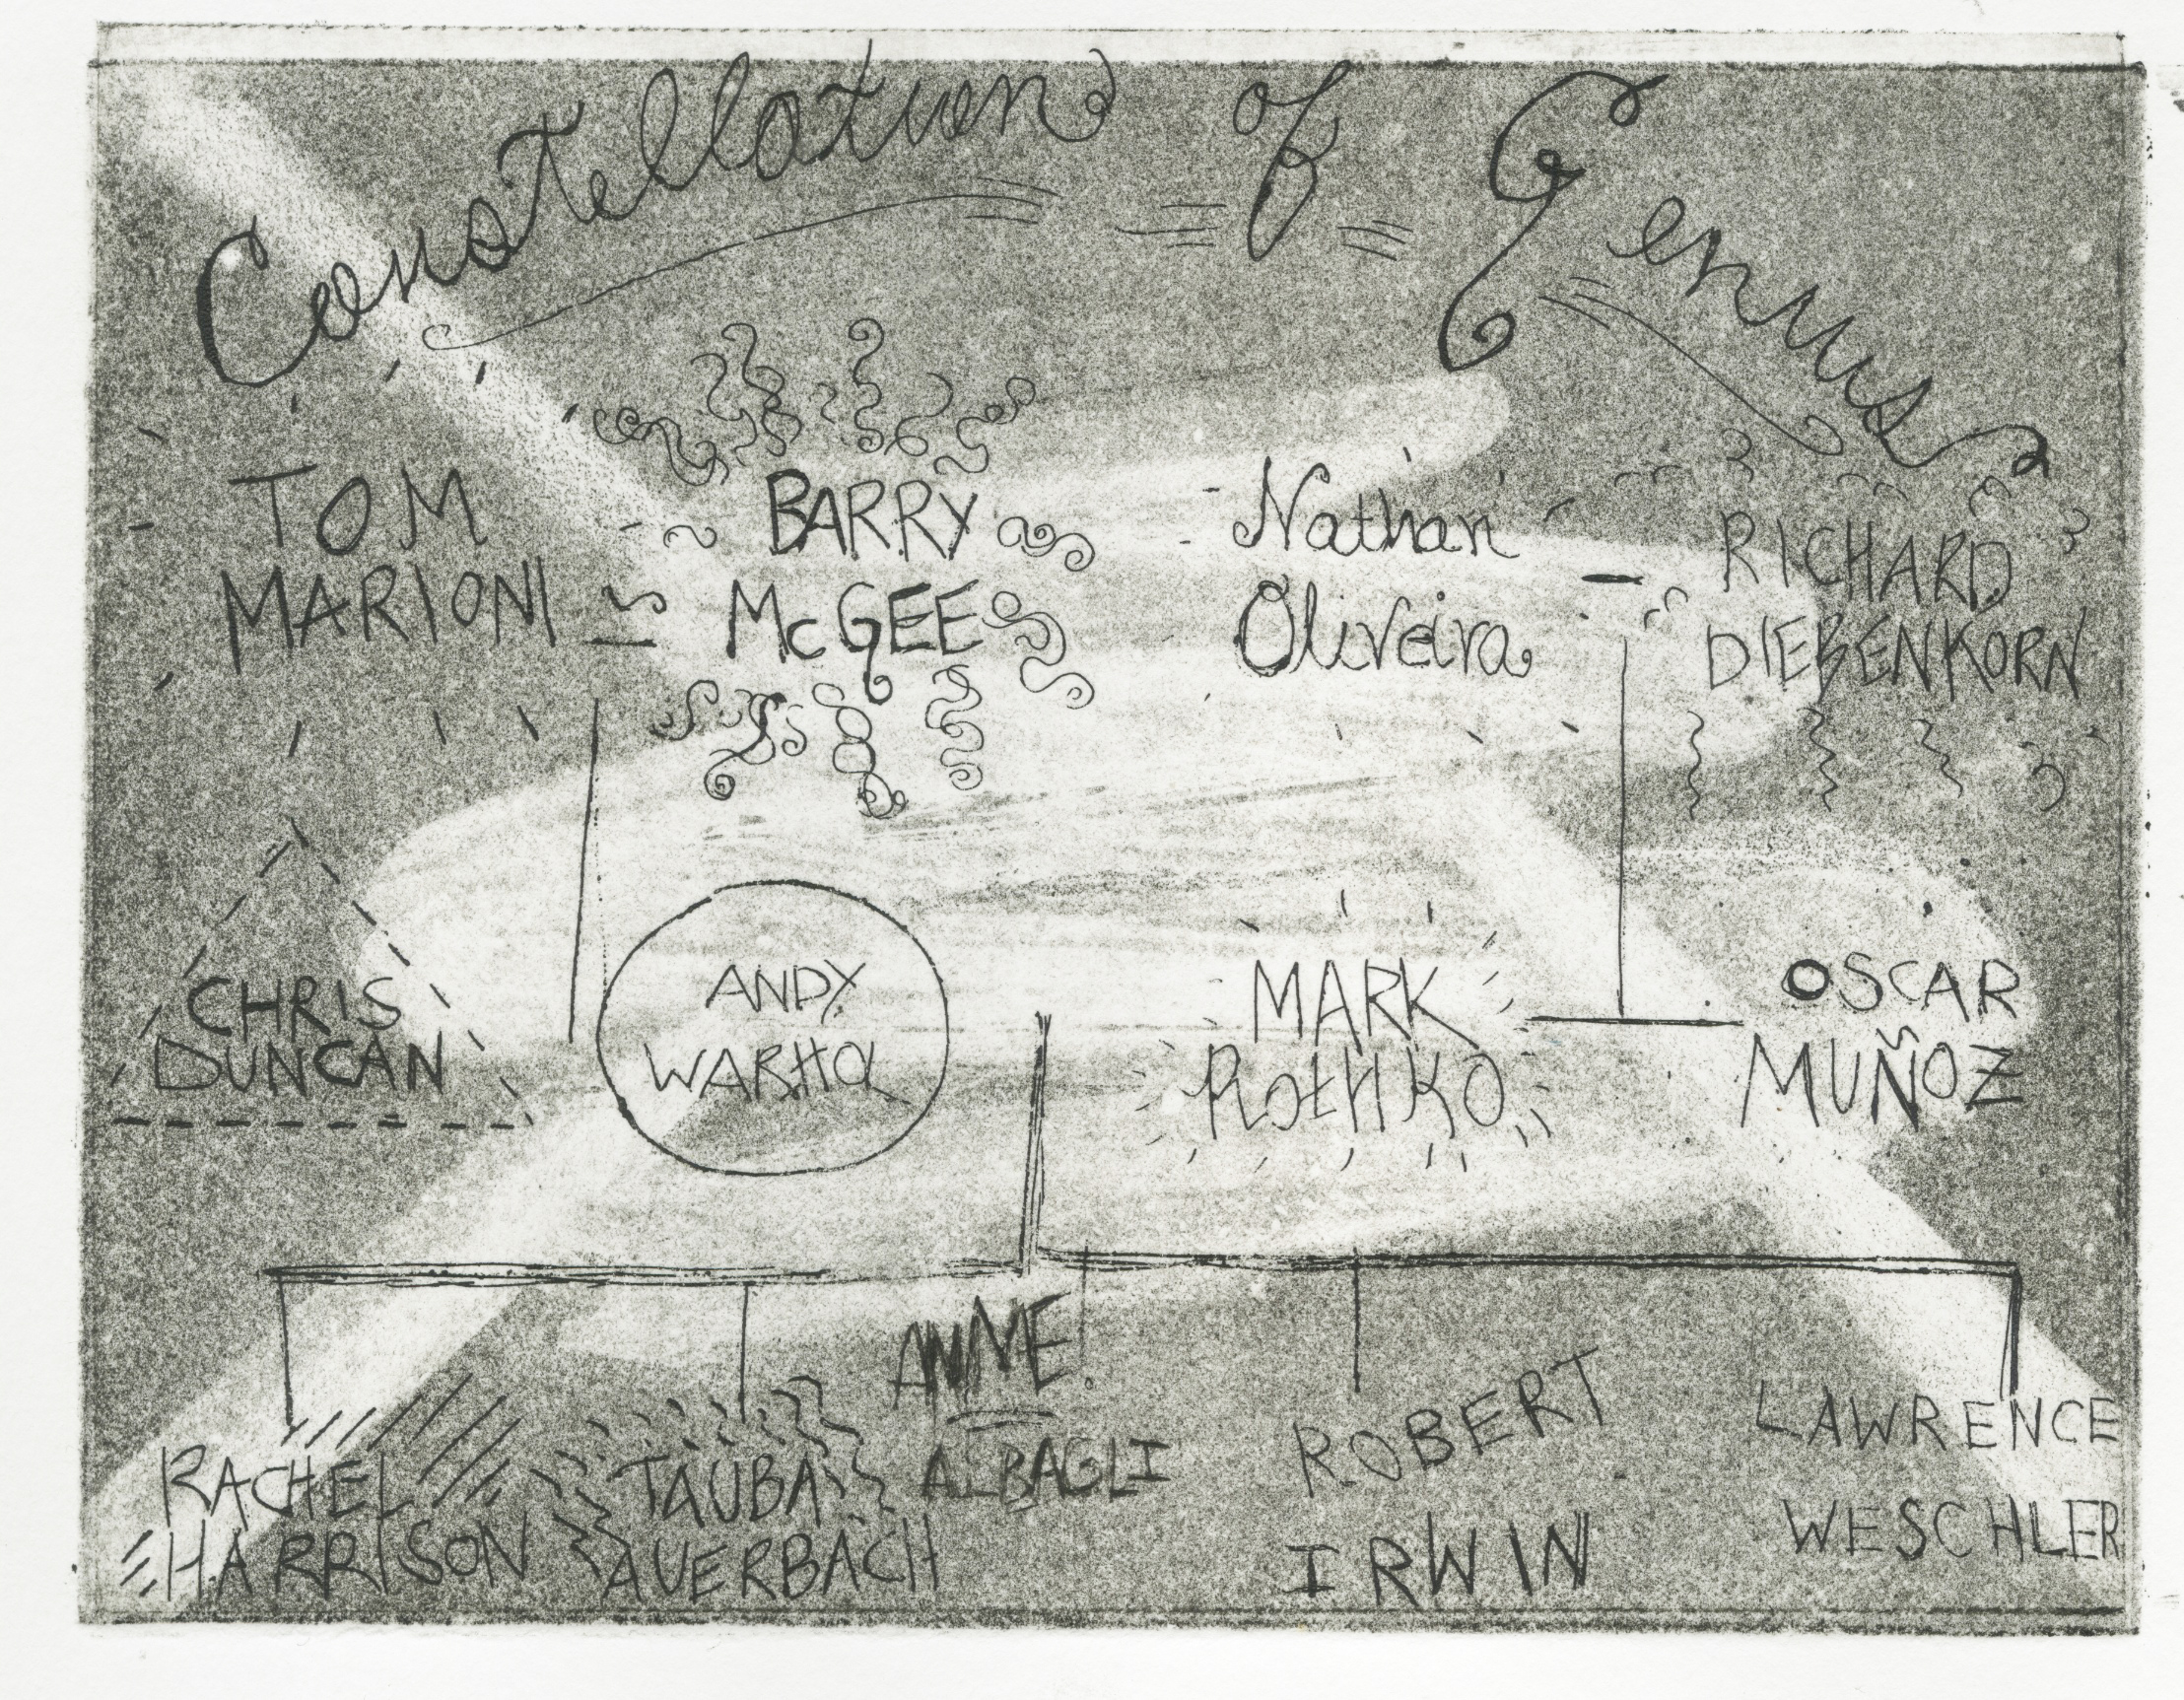 Constellation of Genius
TOM
MARIONI
BARRY
McGEE
Nathan
Oliveira
RICHARD
DIEBENKORN
CHRIS
DUNCAN
ANDY
WARHOL
MARK
ROtHKO
OSCAR
MUÑOZ
RACHEL
HARRISON
TAUBA
AUERBACH
ANNE
ALBAGLI
ROBERT
IRWIN
LAWRENCE
WESCHLER